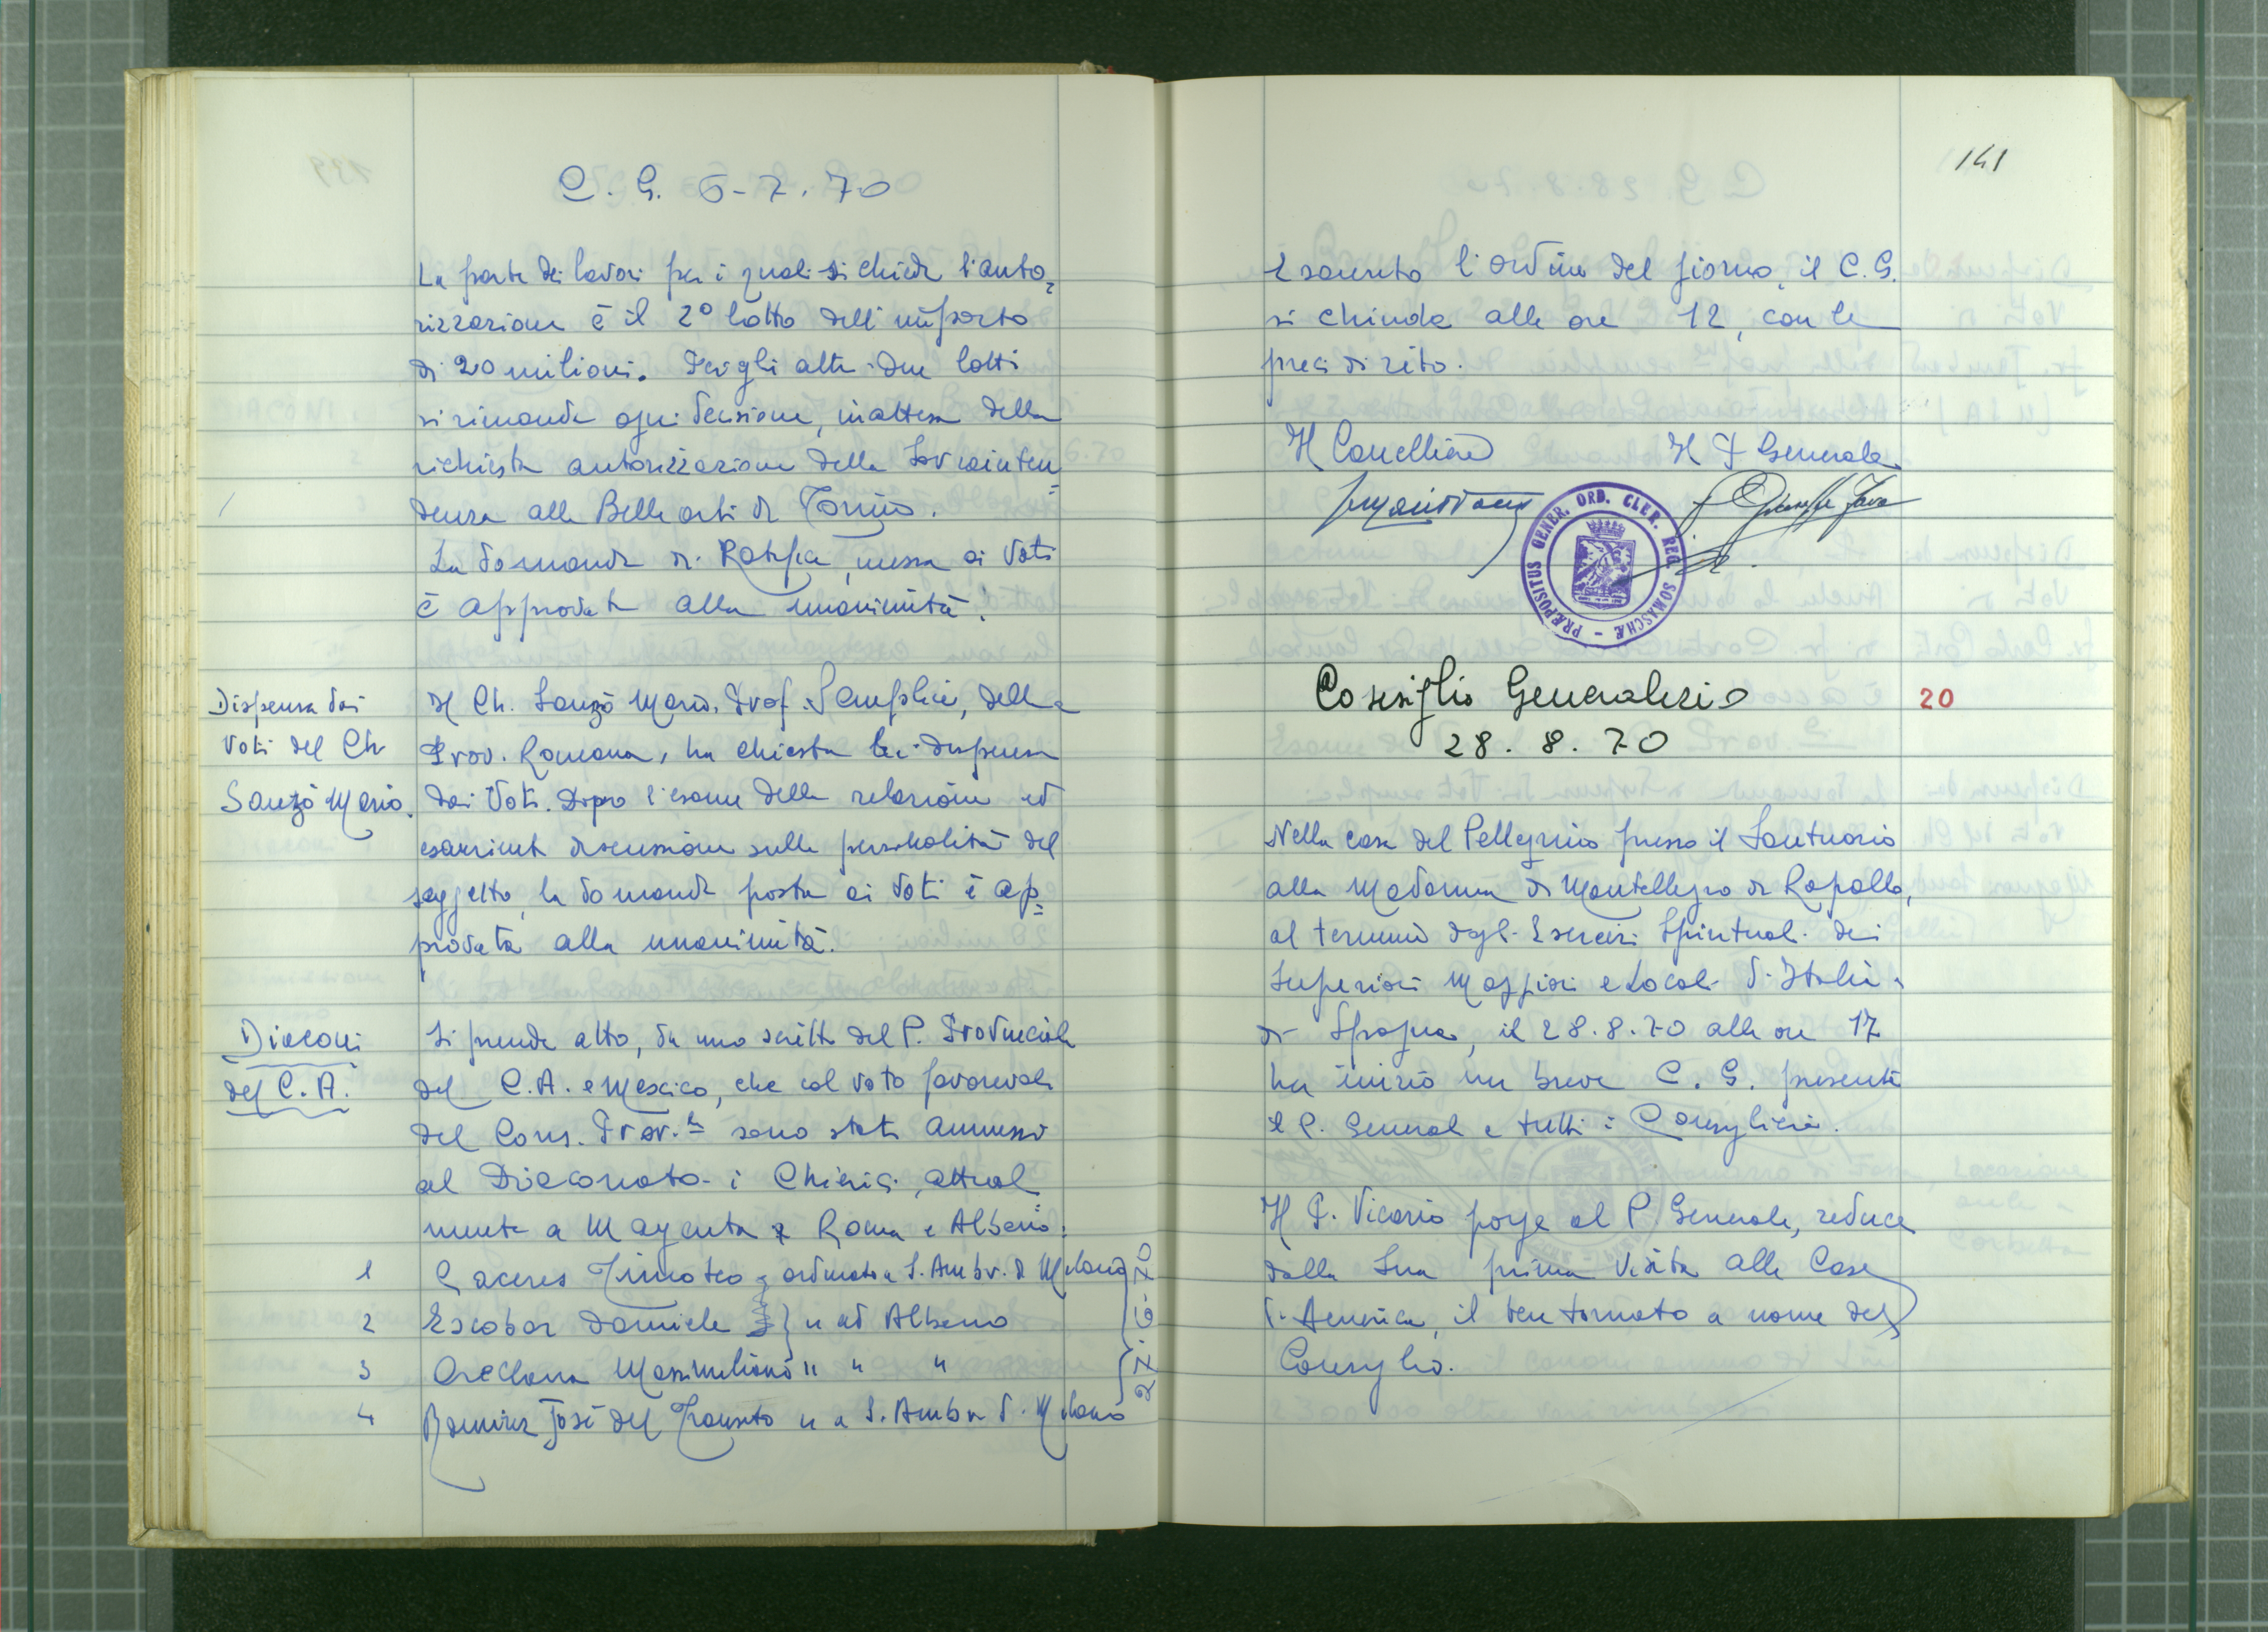 C. G. 6-7.70
La parte dei lavori per i quali si chiede l'auto=
rizzazione è il 2º lotto dell'importo
di 20 milioni. Per gli altri due lotti
si rimanda ogni decisione, in attesa della
richiesta autorizzazione della Sovrainten=
denza alle Belle arti di Torino.
La domanda di Ratifica, messa ai voti
è approvata alla unanimità.
Dispensa dai
Voti del Ch
Sanzò Mario.
Il Ch. Sanzò Mario, Prof. Semplice, della
Prov. Romana, ha chiesta la dispensa
dai Voti. Dopo l'esame della relazione ed
esauriente discussione sulla personalità del
soggetto, la domanda posta ai voti è ap=
provata alla unanimità.
Diaconi
del C.A.
Si prende atto, da uno scritto del P. Provinciale
del C.A. e Messico, che col voto favorevole
del Cons. Prov.le sono stati ammessi
al Diaconato i Chierici, attual=
mente a Magenta, Roma e Albano:
1 Caceres Timoteo, ordinato a S. Ambr. di Milano
2 Escobar Daniele } " ad Albano
3 Orellana Massimiliano " " "
4 Ramirez José del Transito " a S. Ambr. d. Milano
27.6.70
141
Esaurito l'ordine del giorno, il C.G.
si chiude alle ore 12, con le
preci di rito.
Il Cancelliere Il P Generale
P. Giuseppe Fava
PRÆPOSITUS GENER. ORD. CLER. REG. SOMASCHÆ -
Consiglio Generalizio 20
28. 8. 70
Nella casa del Pellegrino presso il Santuario
alla Madonna di Montallegro di Rapallo,
al termine degli Esercizi Spirituali dei
Superiori Maggiori e Locali d'Italia e
di Spagna, il 28.8.70 alle ore 17
ha inizio un breve C. G. presente
il P. Generale e tutti i Consiglieri.
Il P. Vicario porge al P. Generale, reduce
dalla Sua prima Visita alle Case
d'America, il ben tornato a nome del
Consiglio.